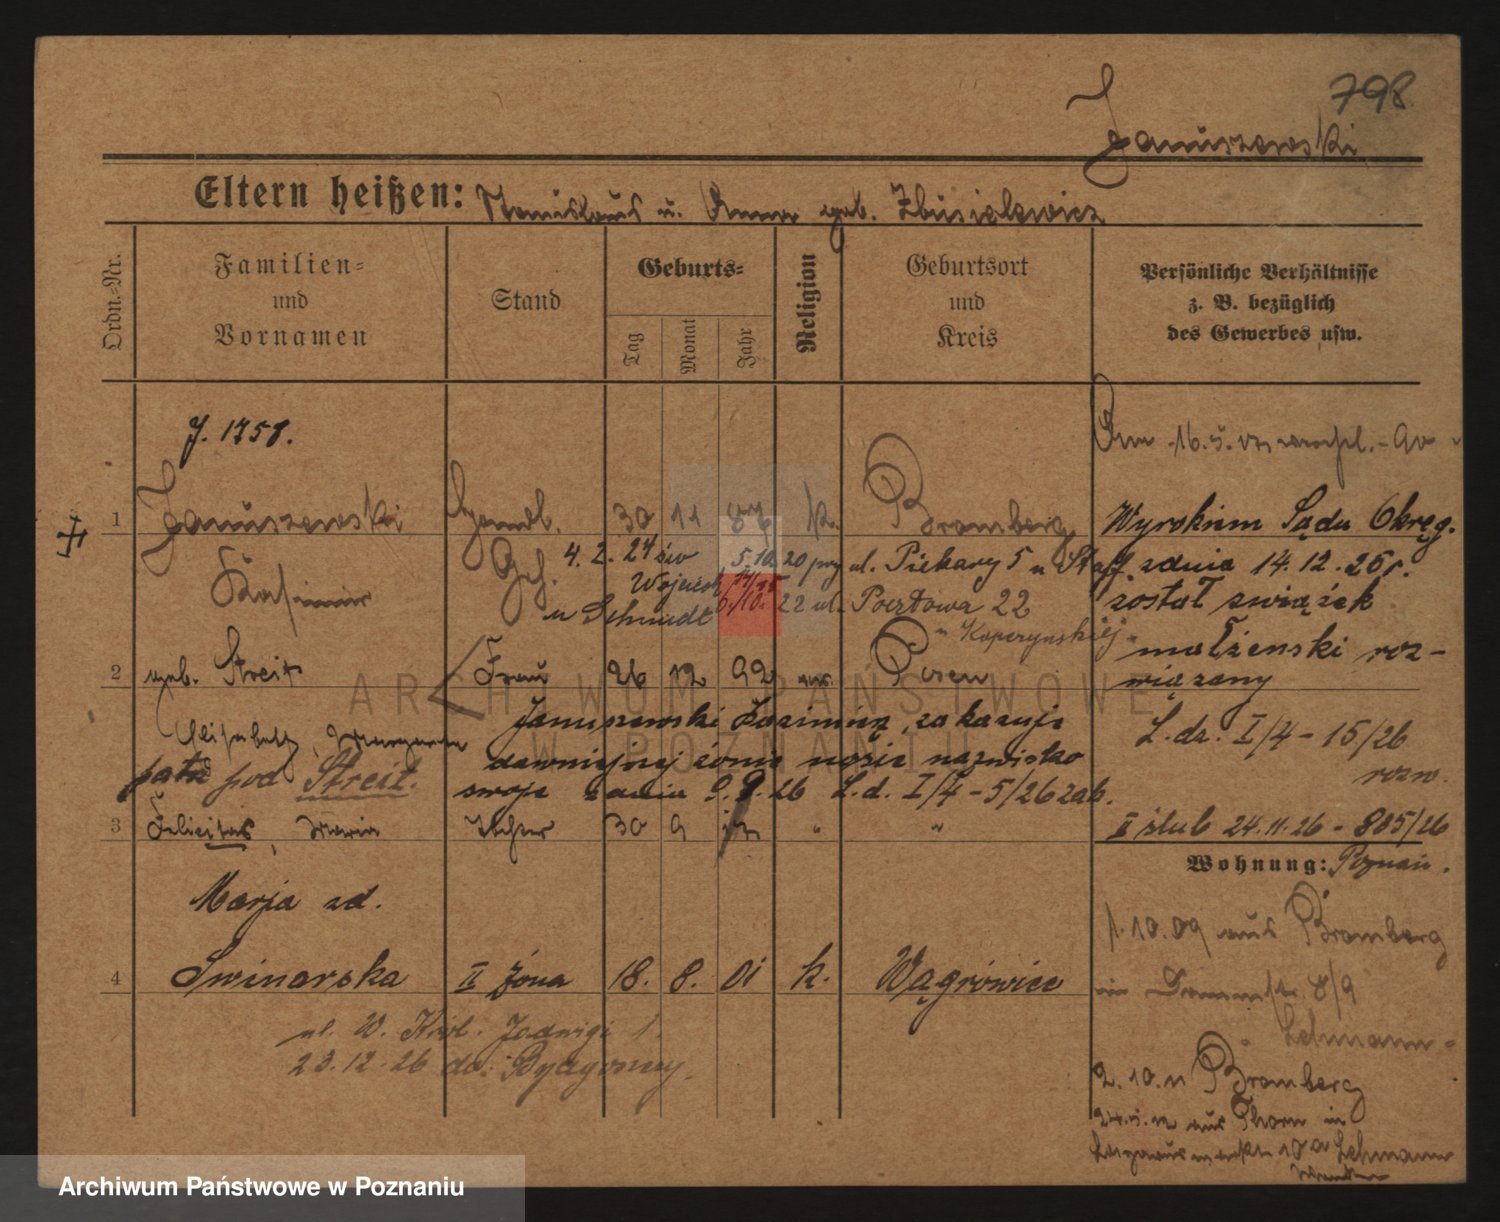 798
Januszewski
Eltern heißen: Stanislaus u. Anna geb.
Ordn.-Nr.
Familien- und Vornamen
Stand
Geburts-
Tag
Monat
Jahr
Religion
Geburtsort und Kreis
Persönliche Verhältnisse z. B. bezüglich des Gewerbes usw.
J. 1758.
1 Januszewski Handl. 30 11 87 k. Bromberg
Kasimir Geh.
4. 2. 24 5. 10. 20 przy ul. Piekary 5 u
u Schmidt 6./10. 22 ul. Pocztowa 22
2 geb. Streit Frau 26 12 92 Posen
Elisabeth, Margarete
pod Streit.
Januszewski Kazimierz, zakazuje
dawniejszej żonie nosić nazwisko
swoje z dnia 9. 9. 26 L.d. I/4-5/26 zak.
3 Felicitas, Maria Tochter 30 9 12 " "
Marja zd.
4 Swinarska II żona 18. 8. 01 k. Wągrówiec
ul. W. Król. Jadwigi 1.
23.12.26 do Bydgoszczy.
Wyrokiem Sądu Okręg.
z dnia 14. 12. 25 r.
został związek
małżenski roz-
wiązany
L. dz. I/4 - 15/26
rozw.
II ślub 24.11.26 - 805/26
Wohnung: Poznań.
1. 10. 09 aus Bromberg
in 8/9
Lehmann
2. 10. 11 Bromberg
24. 5. 12 aus Thorn in
10a Lehmann
ARCHIWUM PAŃSTWOWE
W POZNANIU
Archiwum Państwowe w Poznaniu